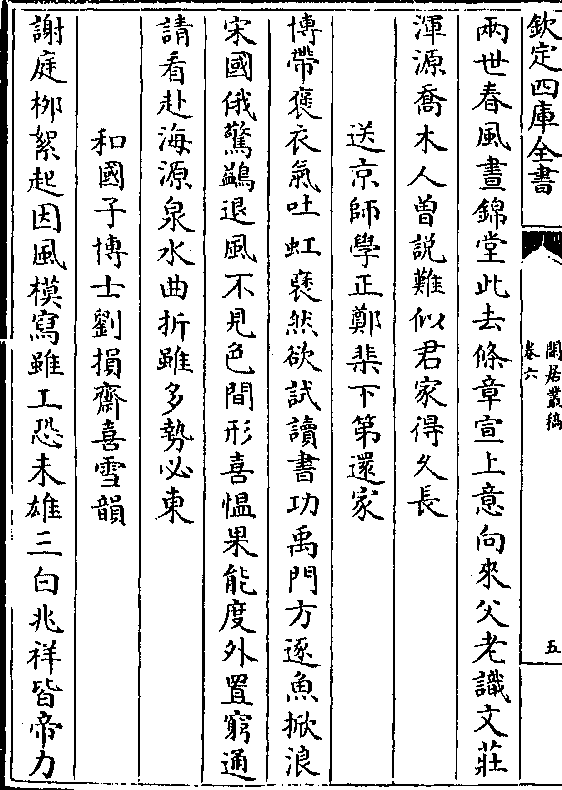 欽定四庫全書
閒居叢稿
卷六
五
兩世春風晝錦堂此去條章宣上意向來父老識文莊
渾源喬木人曽説難似君家得久長
送京師學正鄭渠下第還家
博帶褒衣氣吐虹裒然欲試讀書功禹門方逐魚掀浪
宋國俄驚鷁退風不見色間形喜愠果能度外置窮通
請看赴海源泉水曲折雖多勢必東
和國子博士劉損齋喜雪韻
謝庭栁絮起因風模寫雖工恐未雄三白兆祥皆帝力